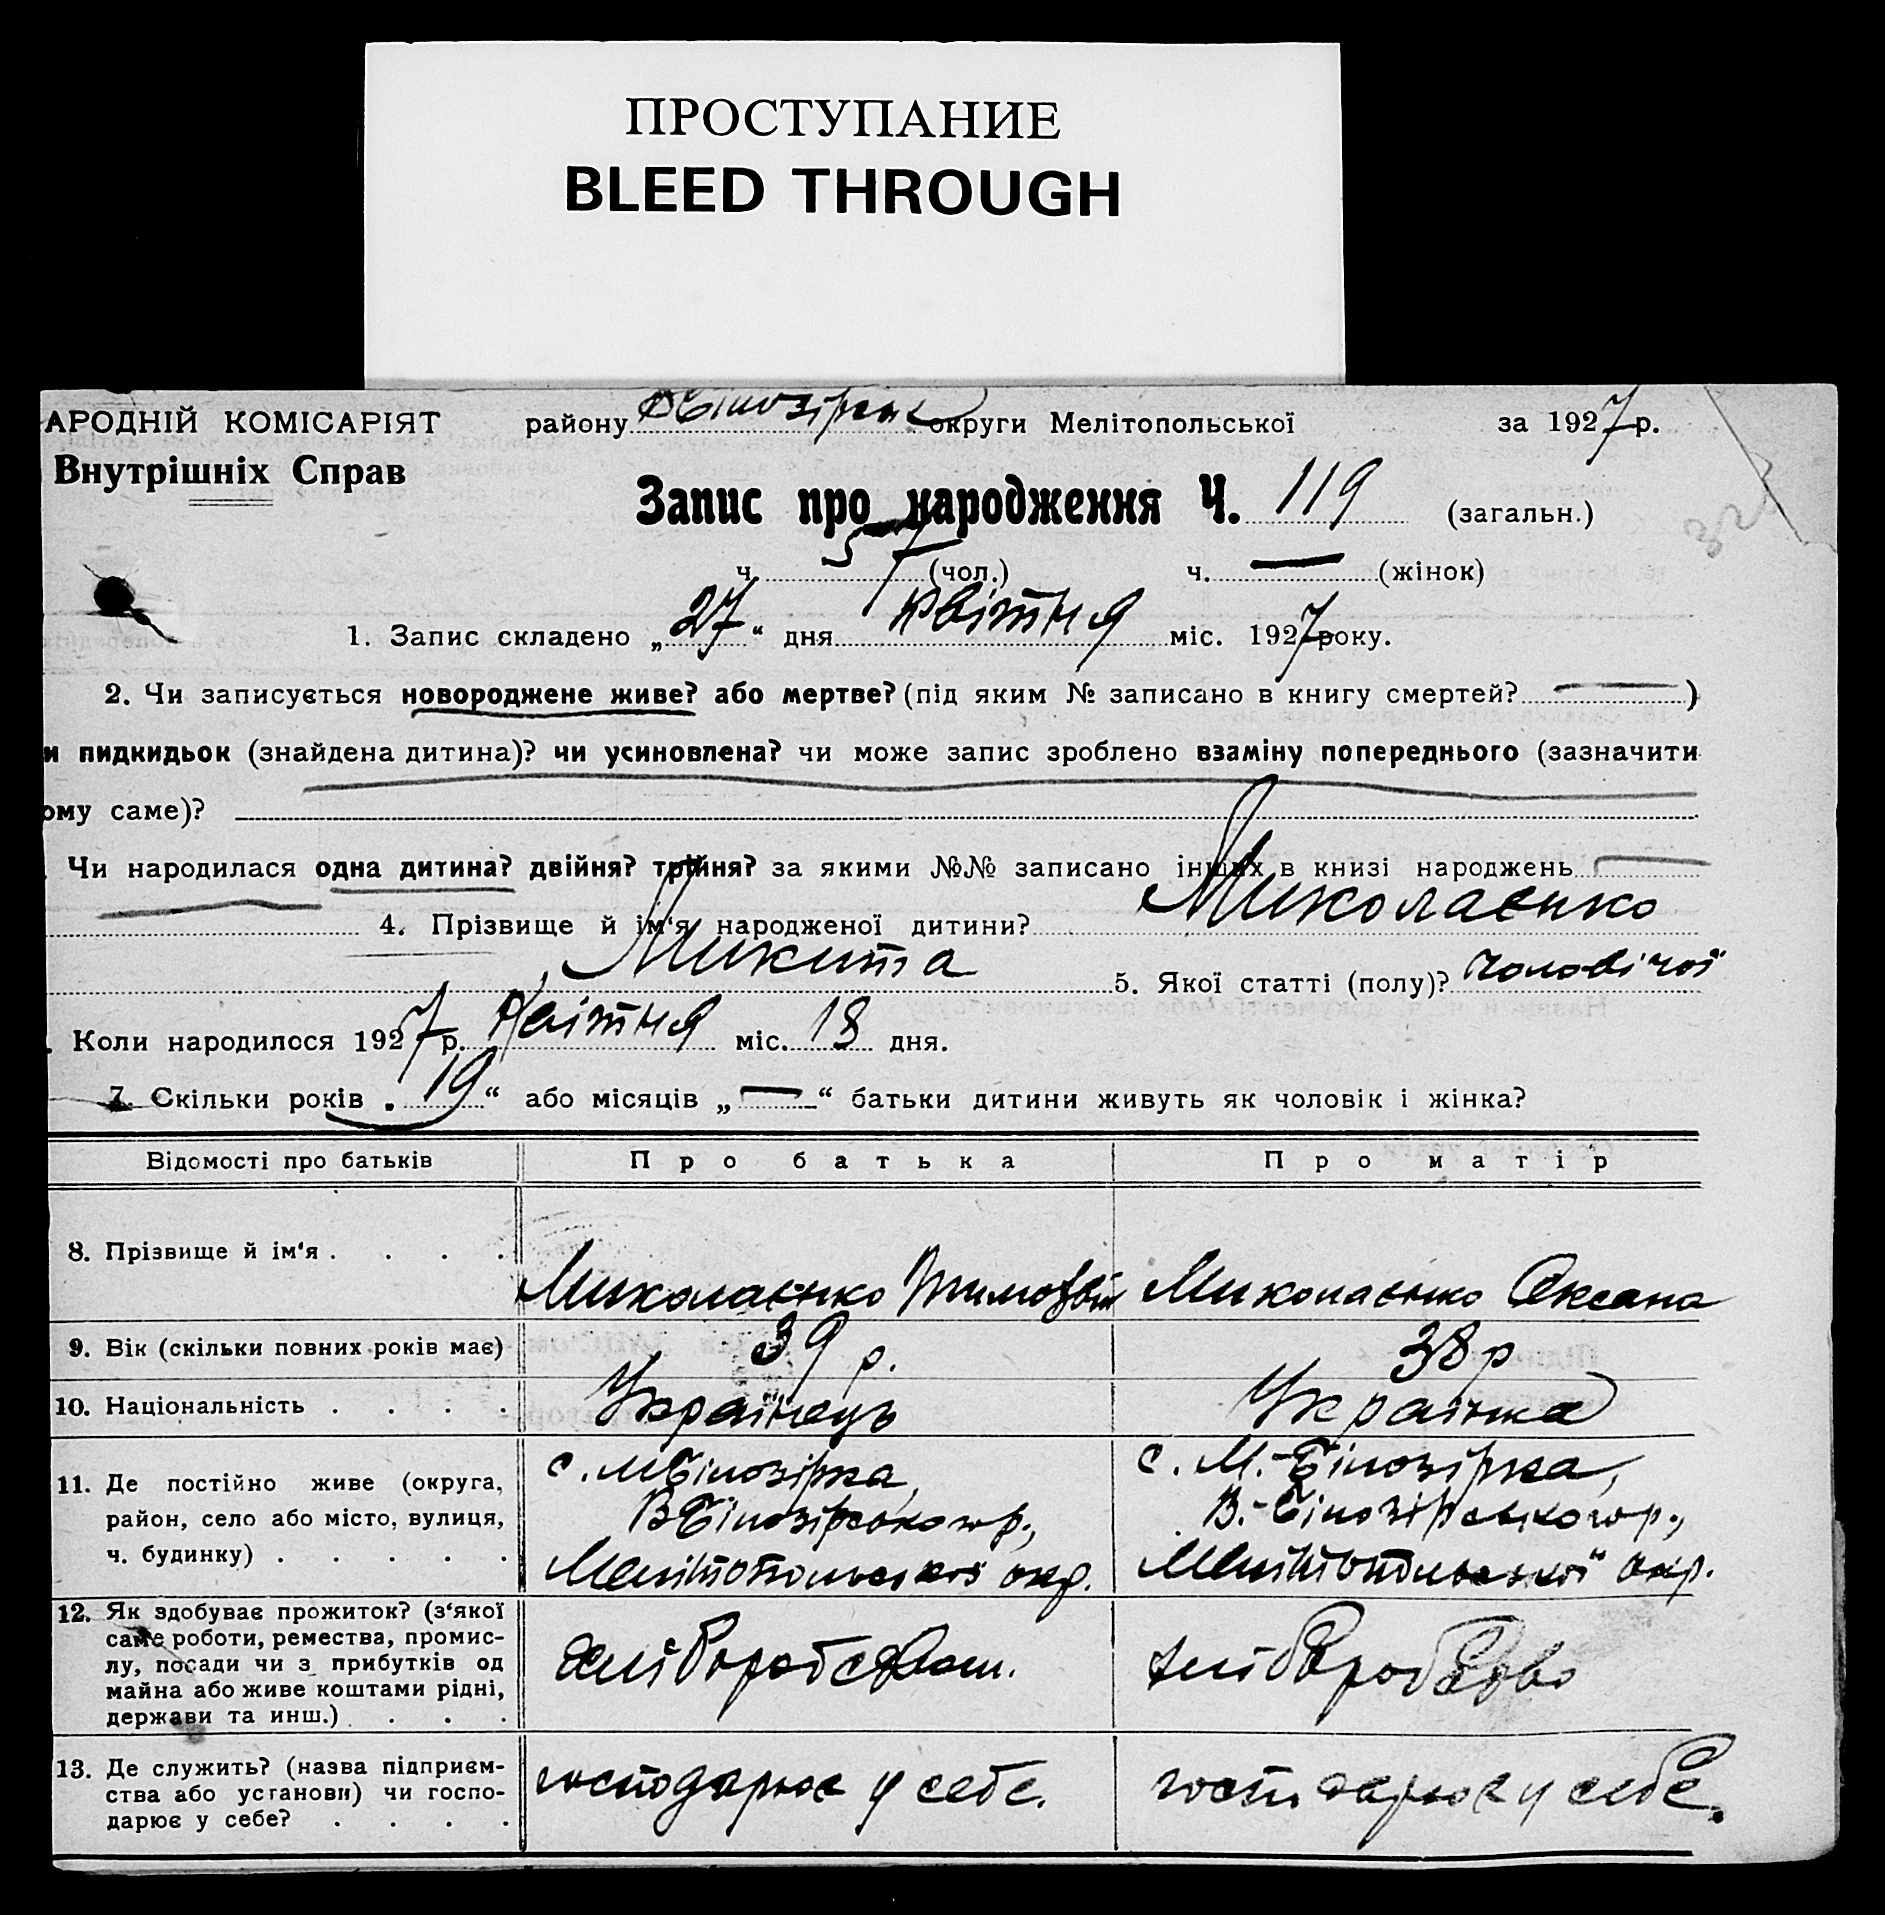 ПРОСТУПАНИЕ
BLEED THROUGH
АРОДНІЙ КОМІСАРІЯТ району округи Мелітопольської за 1927 р.
Внутрішніх Справ
Запис про народження Ч. 119 (загальн.)
ч. 57 (чол.) ч. — (жінок)
1. Запис складено „27“ дня квітня міс. 1927 року.
2. Чи записується новороджене живе? або мертве? (під яким № записано в книгу смертей? — )
и пидкидьок (знайдена дитина)? чи усиновлена? чи може запис зроблено взаміну попереднього (зазначити
ому саме)?
. Чи народилася одна дитина? двійня? трійня? за якими №№ записано інших в книзі народжень —
4. Прізвище й ім‘я народженої дитини? Миколаєнко
Микита 5. Якої статті (полу)? чоловічої
. Коли народилося 1927 р. квітня міс. 18 дня.
7. Скільки років „19“ або місяців „—“ батьки дитини живуть як чоловік і жінка?
Відомості про батьків Про батька Про матір
8. Прізвище й ім‘я . . . . Миколаєнко Тимофій Миколаєнко Оксана
9. Вік (скільки повних років має) 39 р. 38 р
10. Національність . . . . Українець Українка
11. Де постійно живе (округа, с. М Білозірка, с. М.-Білозірка,
район, село або місто, вулиця, В Білозірського р., В.-Білозірського р.,
ч. будинку) . . . . . Мелітопольської окр. Мелітопольської окр.
12. Як здобуває прожиток? (з‘якої
саме роботи, ремества, промис-
лу, посади чи з прибутків од хліборобством. хліборобство
майна або живе коштами рідні,
держави та инш.) . . .
13. Де служить? (назва підприєм-
ства або установи) чи госпо- господарює у себе. господарює у себе.
дарює у себе? . . . .